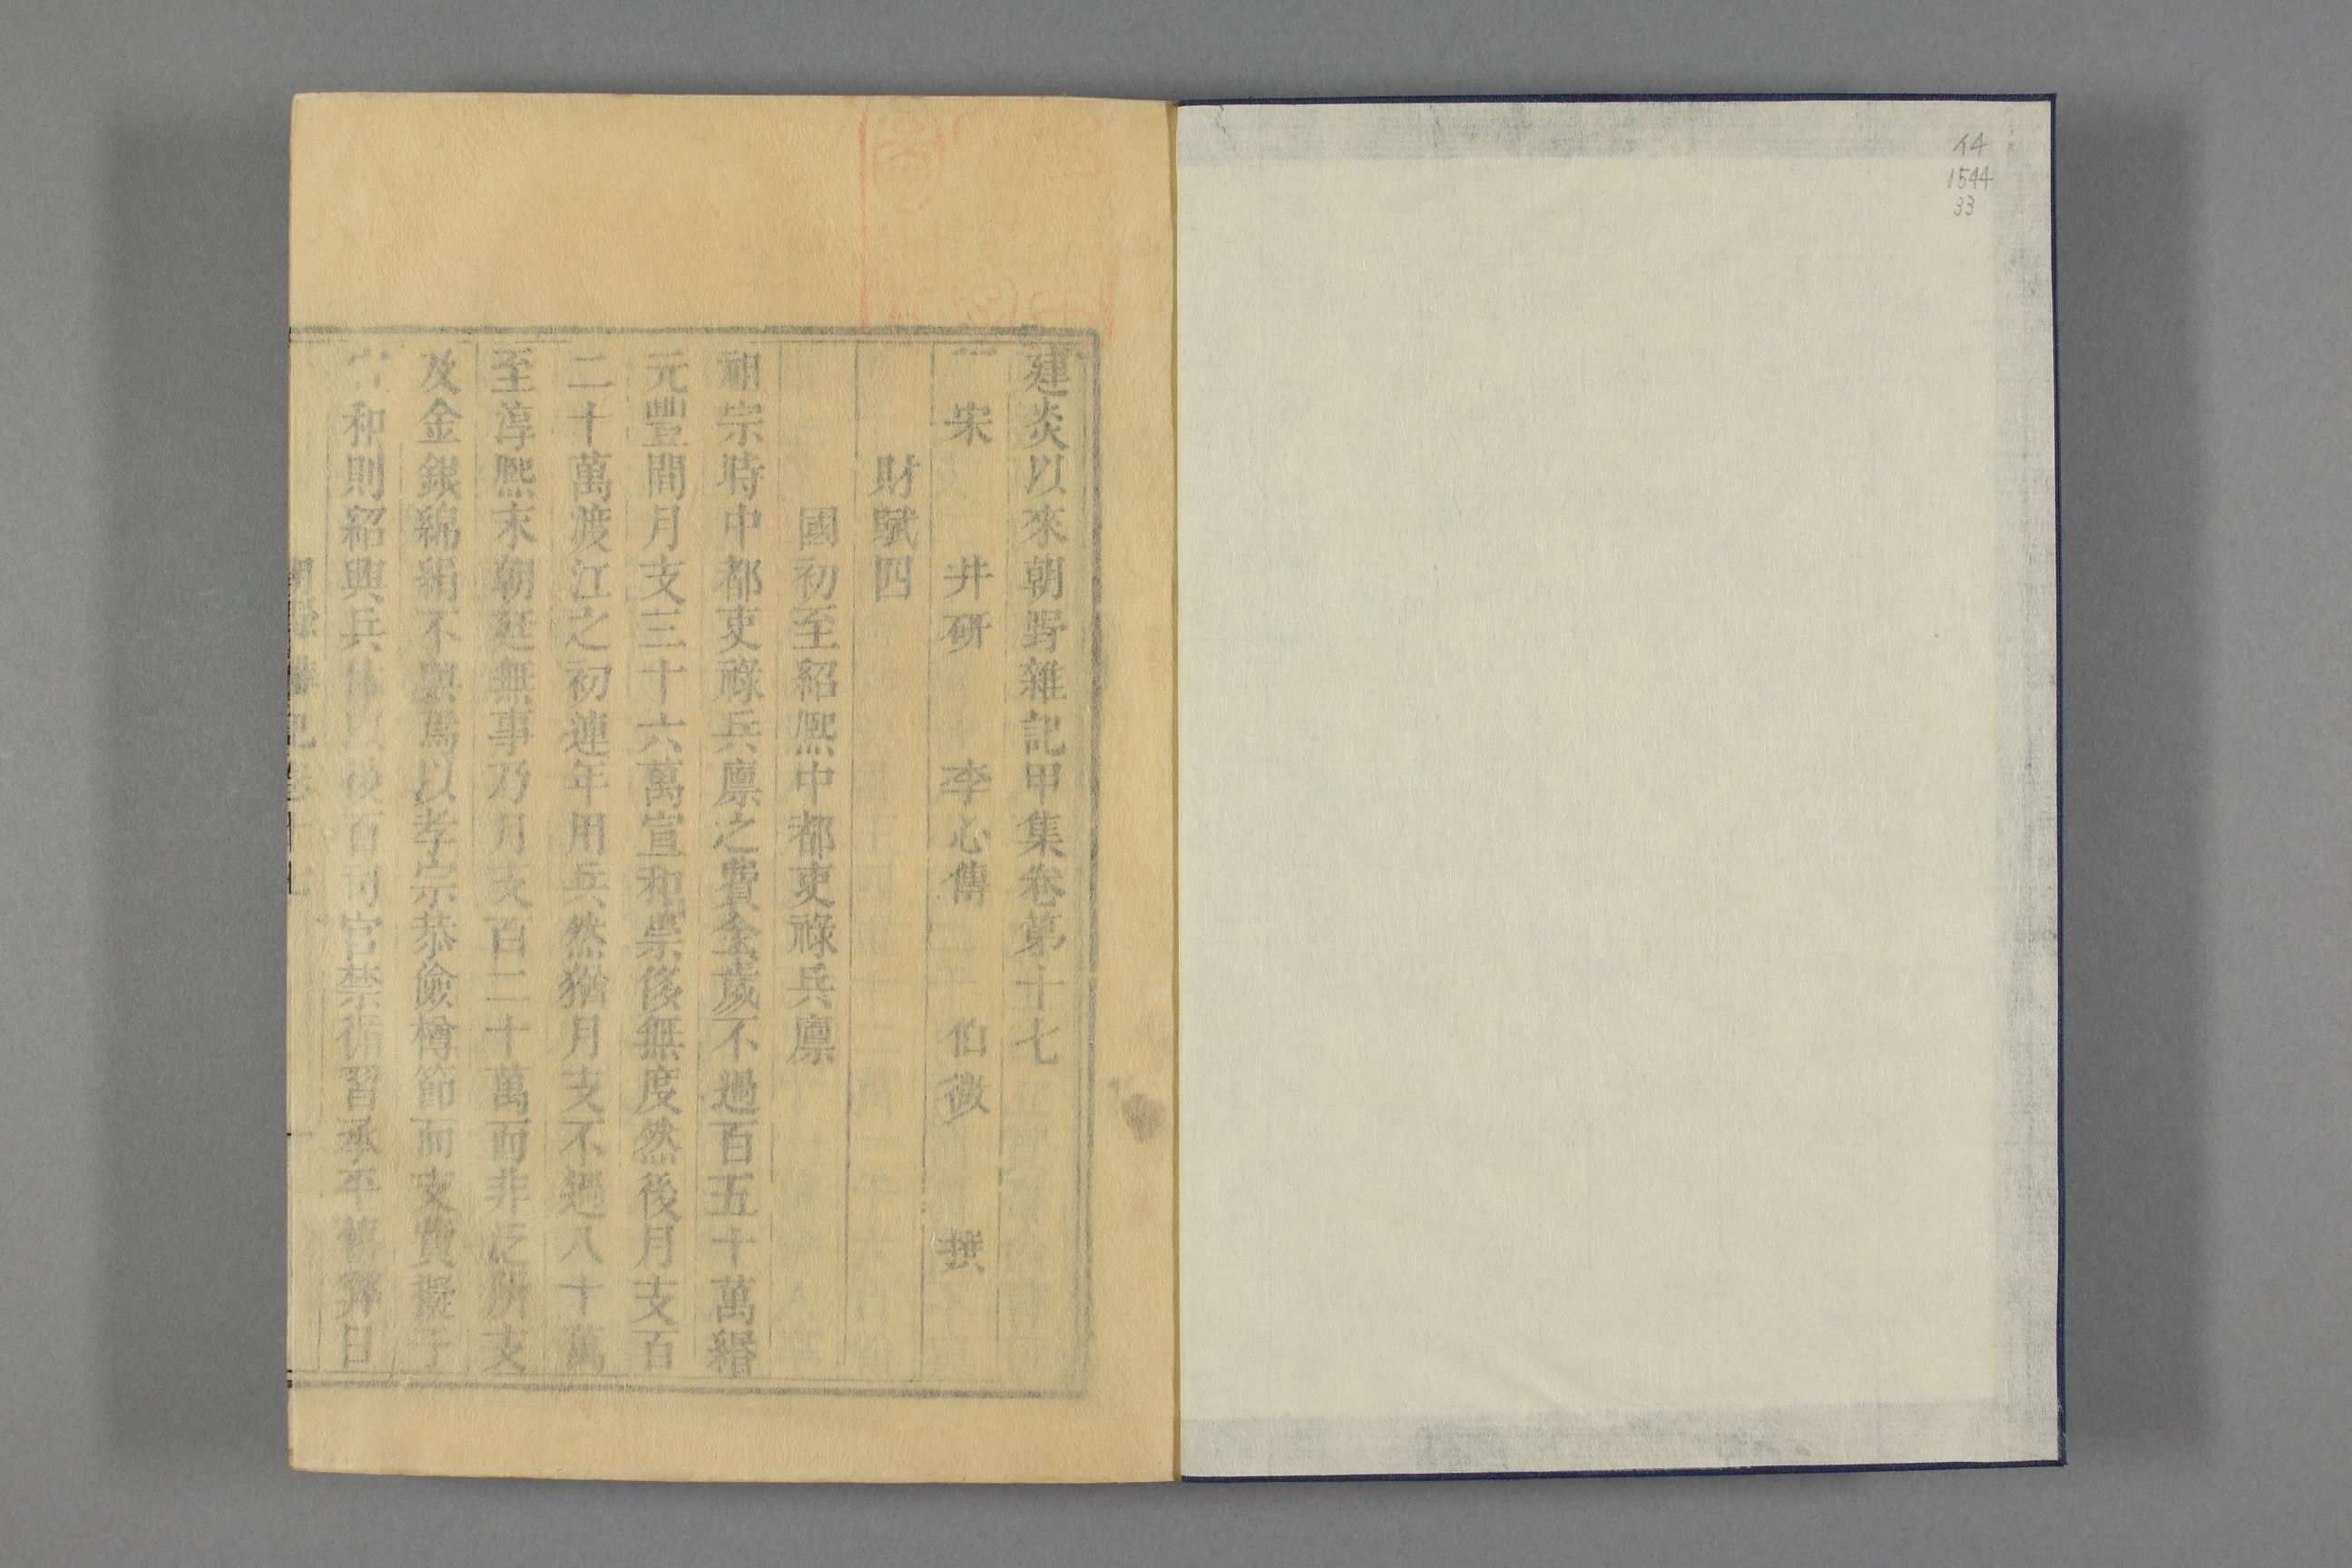 建炎以來朝野雜記甲集卷第十七
宋 井研 李心傳 伯微 撰
財賦四
國初至紹熙中都吏祿兵廩
祖宗時中都吏祿兵廩之費全歲不過百五十萬緡
元豐間月支三十六萬宣和崇侈無度然後月支百
二十萬渡江之初連年用兵然猶月支不過八十萬
至淳熙末朝廷無事乃月支百二十萬而非泛所支
及金銀綿絹不與焉以孝宗恭儉樽節而支費擬于
宣和則紹興兵休以後百司官禁循習承平舊弊日
44
1544
33